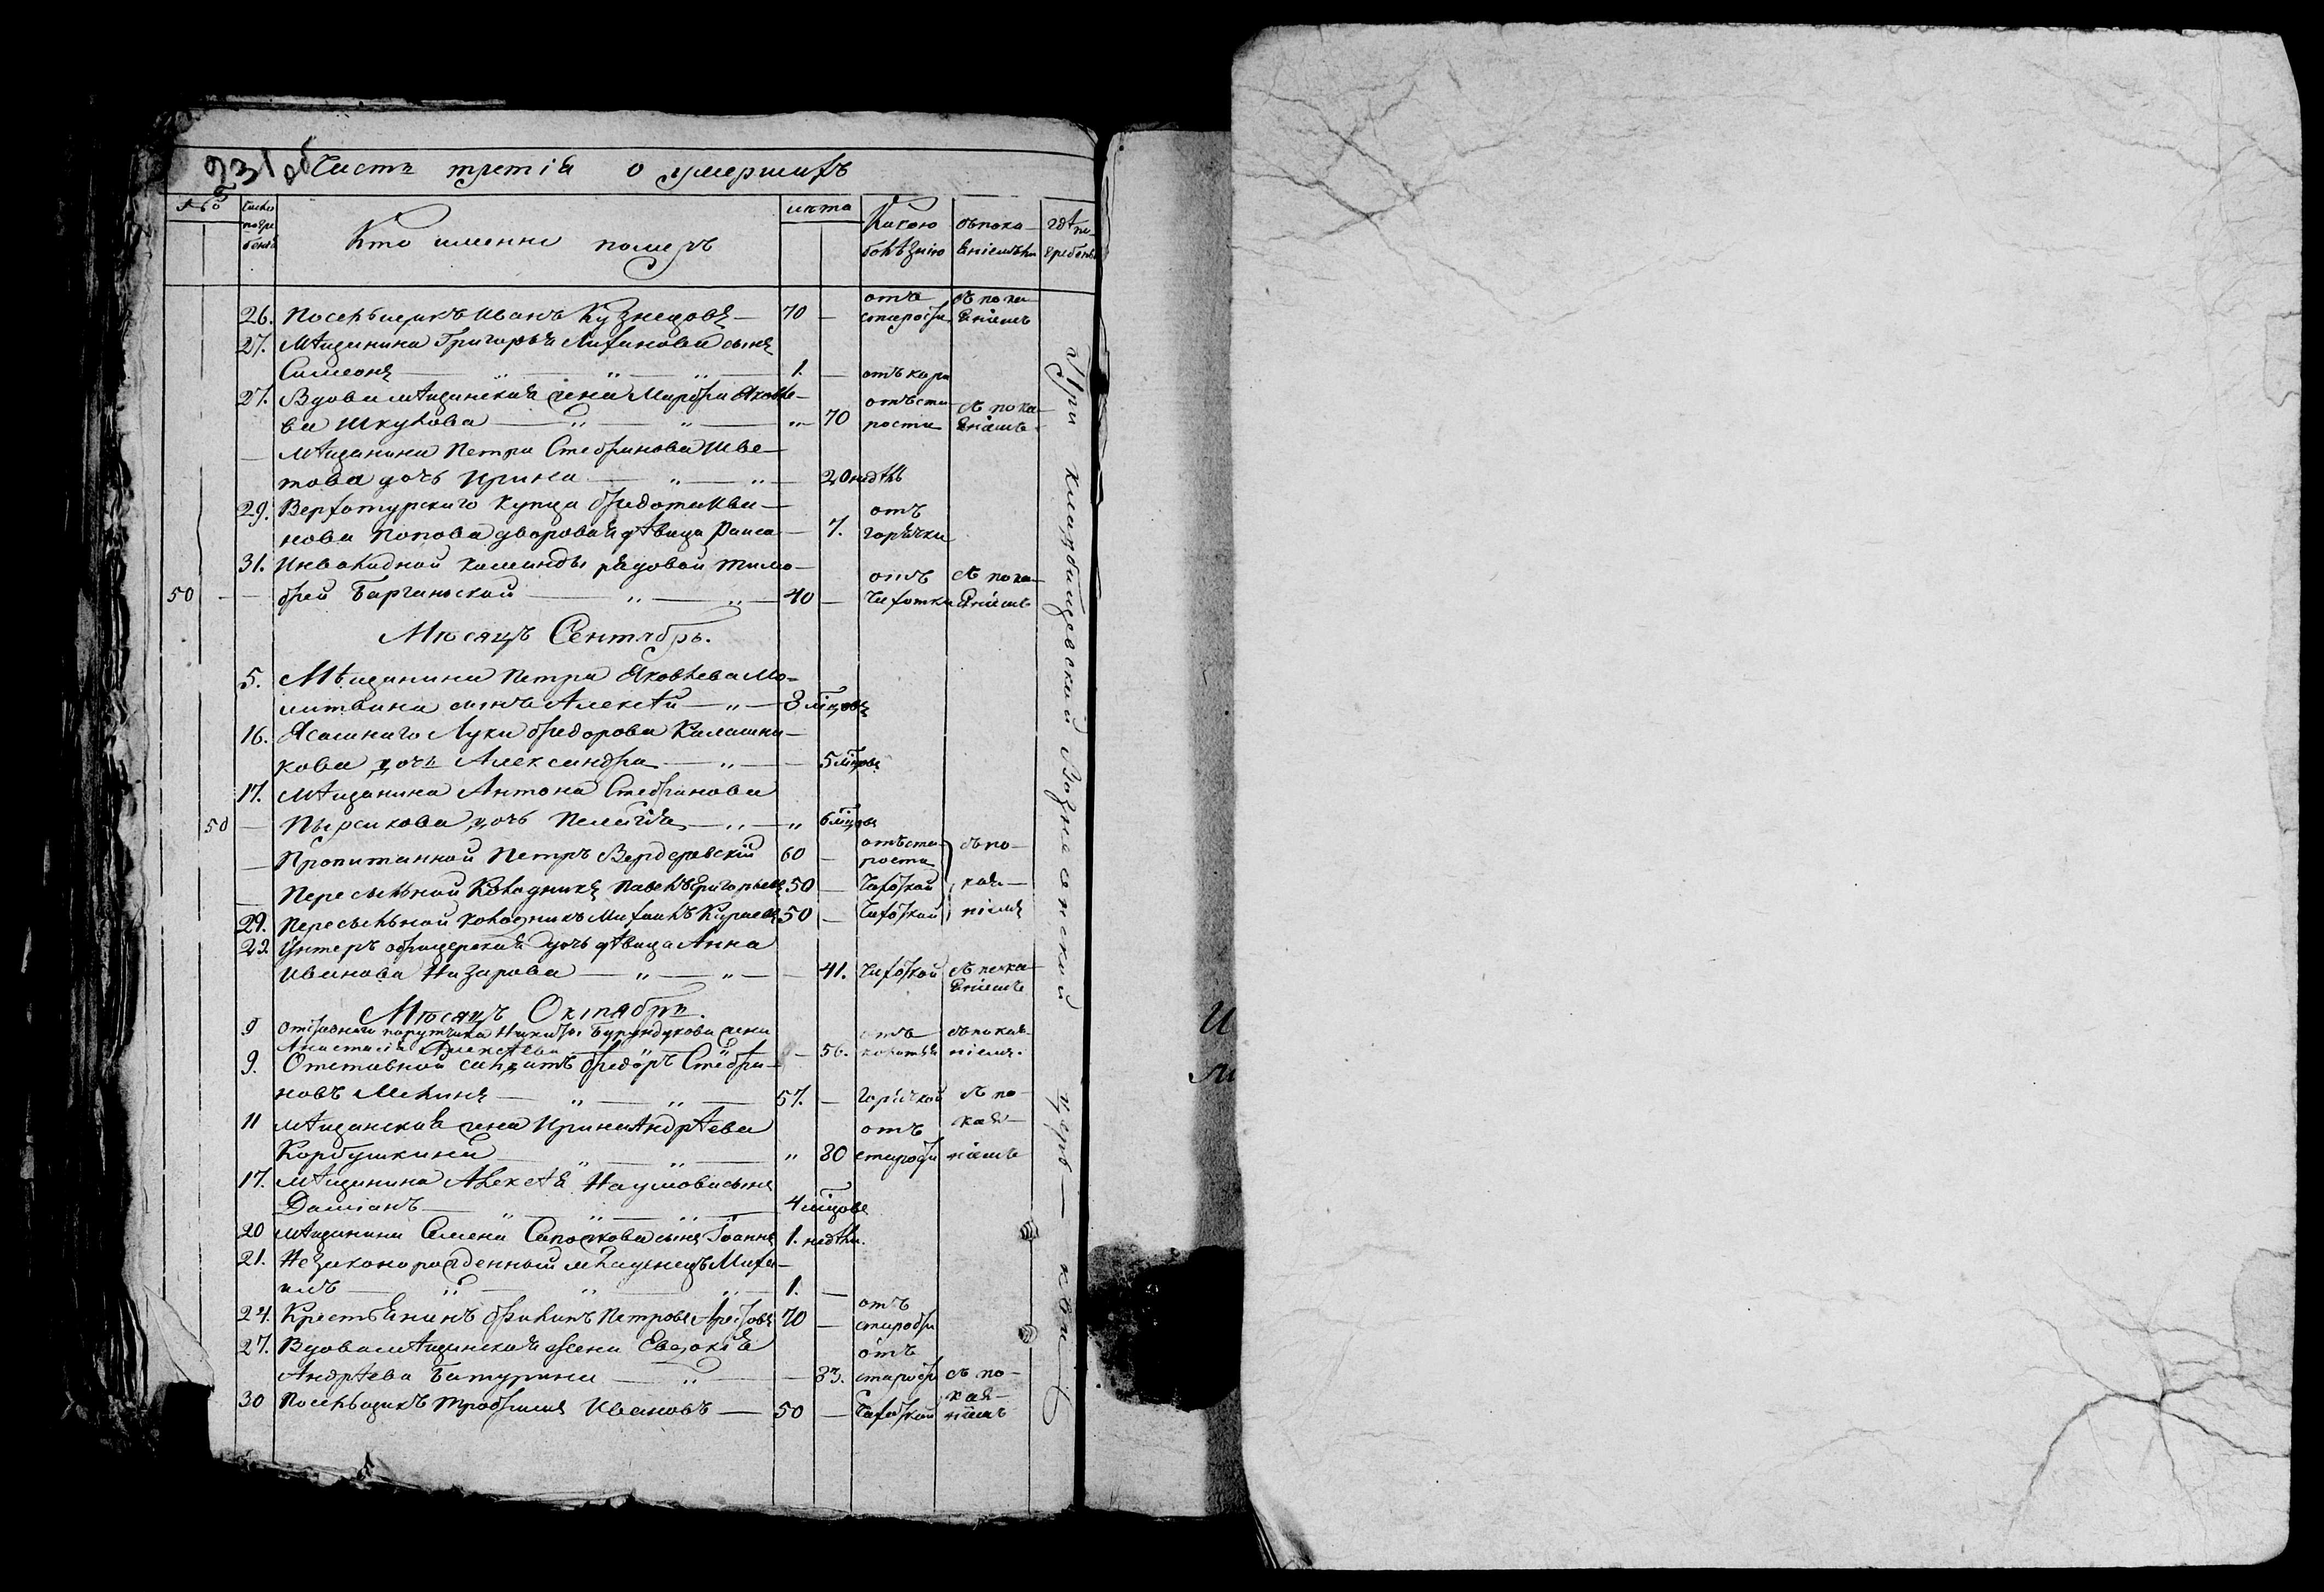 231 об
Часть третія о умершихъ
число погребенія
Кто именно померъ
лѣта
Какою болѣзнію
съ покаяніемъ ли
гдѣ погребенъ
26. Посельщикъ Иванъ Кузнецовъ — 70 — отъ старости съ покаяніемъ
27. Мѣщанина Григорья Лихановa сынъ
Симеонъ — 1. — отъ кори
27. Вдова мѣщинская жена Марфа Яковле-
ва Шкулова — „ — 70 отъ старости съ покаяніемъ
— Мѣщанина Петра Стефанова Шве-
това дочь Ирина — 20 недѣль
29. Верхотурскаго купца Федота Ива-
нова Попова дворовая дѣвица Раиса — 7. отъ горячки
31. Инвалидной команды рядовой Тимо-
50 — — фей Барганской — 40 — отъ чахотки съ покаяніемъ
Мѣсяцъ Сентябрь.
5. Мѣщанина Петра Яковлева Мо-
литвина сынъ Алексѣй — „ — 8 мѣцовъ
16. Ясашнаго Луки Федорова Калашни-
кова дочь Александра — „ — 5 мѣцовъ
17. Мѣщанина Антона Стефанова
50 — Пырсикова дочь Пелагія — „ — „ 6 мѣцовъ
— Пропитанной Петръ Вердеревскій 60 — отъ старости съ по-
— Пересыльной колодникъ Павелъ Григорьевъ 50 — Чахоткой кая-
29. Пересыльной колодникъ Михаилъ Кураевъ 50 — Чахоткой ніемъ
22. Унтеръ офицерская дочь дѣвица Анна
Иванова Назарова — „ — „ — 41. Чахоткой съ покаяніемъ
Мѣсяцъ Октябрь.
9 Отставнаго порутчика Никиты Бурундукова жена
Анастасія Алексѣева — 56. отъ съ покаяніемъ.
9. Отставной солдатъ Федоръ Стефа-
новъ Мекинъ — „ — „ — 57. — Горячкой съ по-
11 мѣщанская жена Ирина Андрѣева отъ кая-
Корбушкина — „ — „ 80 старости ніемъ
17. мѣщанина Алексѣя Наумова сынъ
Даміанъ — 4 мѣцовъ
20 мѣщанина Семена Сапожкова сынъ Іоаннъ 1. недѣли.
21. Незаконорожденный младенецъ Миха-
илъ — „ — „ — 1. —
24. Крестьянинъ Филипъ Петровъ Арефовъ 70 — отъ старости
27. Вдова мѣщинская жена Евдокія отъ
Андрѣева Батурина — „ — 83. старости съ по-
30 Посельщикъ Трофимъ Ивановъ — 50 — Чахоткой каяніемъ
При кладбищевской Вознесенской церк— кви